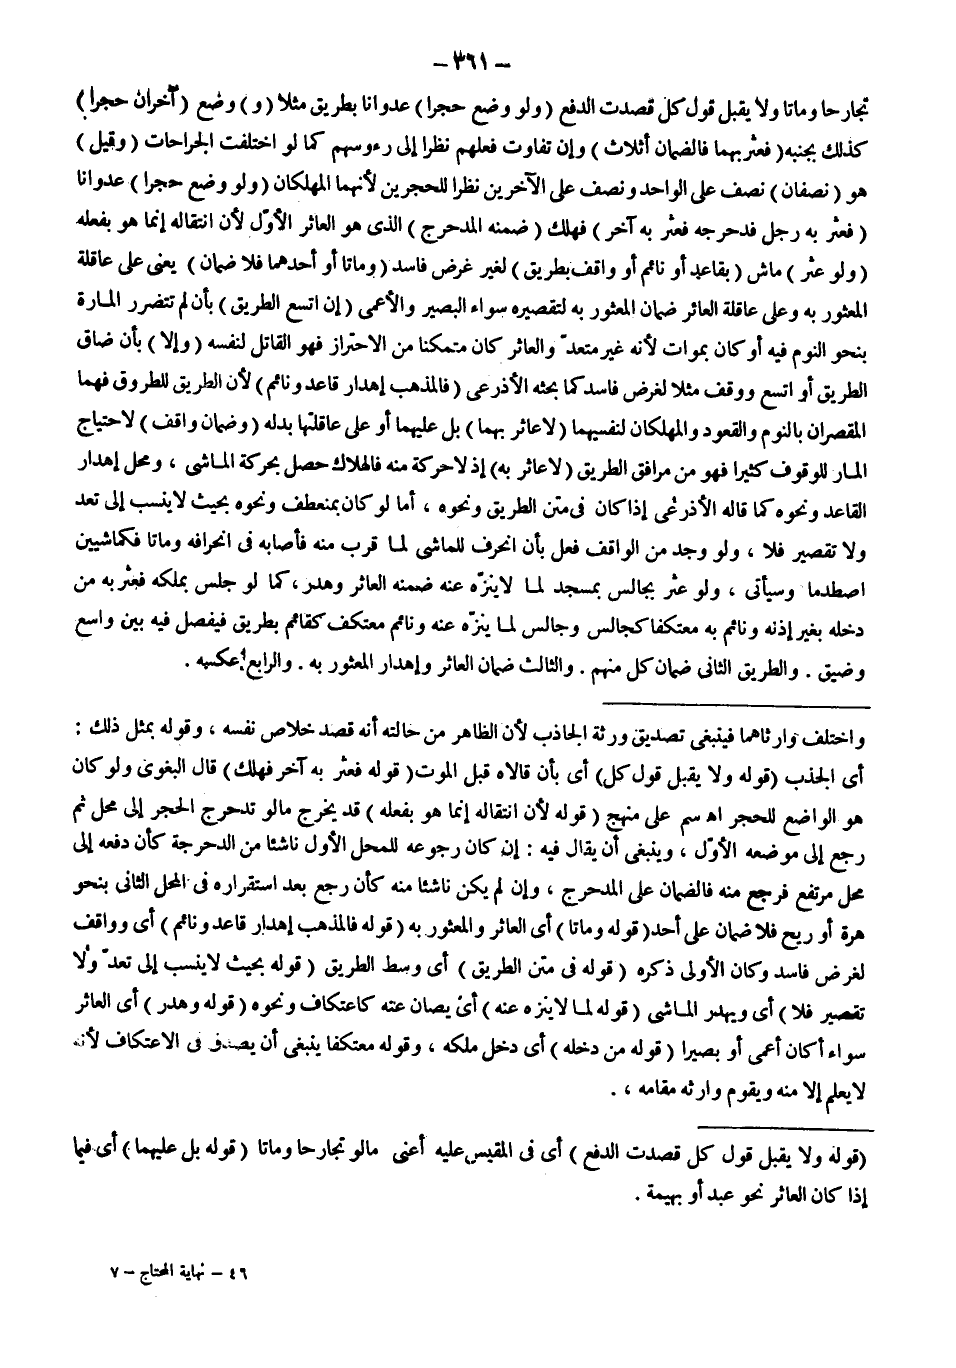 - ٣٦١ -
تجارحا وماتا ولا يقبل قول كل قصدت الدفع ( ولو وضع حجرا ) عدوانا بطريق مثلا ( و ) وضع ( آخران حجرا )
كذلك بجنبه ( فعثر بهما فالضمان أثلاث ) وإن تفاوت فعلهم نظرا إلى رءوسهم كما لو اختلفت الجراحات ( وقيل )
هو ( نصفان ) نصف على الواحد ونصف على الآخرين نظرا للحجرين لأنهما المهلكان ( ولو وضع حجرا ) عدوانا
( فعثر به رجل فدحرجه فعثر به آخر ) فهلك ( ضمنه المدحرج ) الذى هو العاثر الأوّل لأن انتقاله إنما هو بفعله
( ولو عثر ) ماش ( بقاعد أو نائم أو واقف بطريق ) لغير غرض فاسد ( وماتا أو أحدهما فلا ضمان ) يعنى على عاقلة
المعثور به وعلى عاقلة العاثر ضمان المعثور به لتقصيره سواء البصير والأعمى ( إن اتسع الطريق ) بأن لم تتضرر المـارة
بنحو النوم فيه أو كان بموات لأنه غير متعدّ والعاثر كان متمكنا من الاحتراز فهو القاتل لنفسه ( وإلا ) بأن ضاق
الطريق أو اتسع ووقف مثلا لغرض فاسد كما بحثه الأذرعى ( فالمذهب إهدار قاعد ونائم ) لأن الطريق للطروق فهما
المقصران بالنوم والقعود والمهلكان لنفسيهما ( لا عاثر بهما ) بل عليهما أو على عاقلتها بدله ( وضمان واقف ) لاحتياج
المـار للوقوف كثيرا فهو من مرافق الطريق ( لا عاثر به ) إذ لا حركة منه فالهلاك حصل بحركة المـاشى ، ومحل إهدار
القاعد ونحوه كما قاله الأذرعى إذا كان فى متن الطريق ونحوه ، أما لو كان بمنعطف ونحوه بحيث لا ينسب إلى تعد
ولا تقصير فلا ، ولو وجد من الواقف فعل بأن انحرف للماشى لمـا قرب منه فأصابه فى انحرافه وماتا فكماشيين
اصطدما وسيأتى ، ولو عثر بجالس بمسجد لمـا لا ينزّه عنه ضمنه العاثر وهدر ، كما لو جلس بملكه فعثر به من
دخله بغير إذنه ونائم به معتكفا كجالس وجالس لمـا ينزّه عنه ونائم معتكف كقائم بطريق فيفصل فيه بين واسع
وضيق . والطريق الثانى ضمان كل منهم . والثالث ضمان العاثر وإهدار المعثور به . والرابع عكسه .
واختلف وارثاهما فينبغى تصديق ورثة الجاذب لأن الظاهر من حالته أنه قصد خلاص نفسه ، وقوله بمثل ذلك :
أى الجذب ( قوله ولا يقبل قول كل ) أى بأن قالاه قبل الموت ( قوله فعثر به آخر فهلك ) قال البغوى ولو كان
هو الواضع للحجر اه سم على منهج ( قوله لأن انتقاله إنما هو بفعله ) قد يخرج مالو تدحرج الحجر إلى محل ثم
رجع إلى موضعه الأوّل ، وينبغى أن يقال فيه : إن كان رجوعه للمحل الأول ناشئا من الدحرجة كأن دفعه إلى
محل مرتفع فرجع منه فالضمان على المدحرج ، وإن لم يكن ناشئا منه كأن رجع بعد استقراره فى المحل الثانى بنحو
هرة أو ريح فلا ضمان على أحد ( قوله وماتا ) أى العاثر والمعثور به ( قوله فالمذهب إهدار قاعد ونائم ) أى وواقف
لغرض فاسد وكان الأولى ذكره ( قوله فى متن الطريق ) أى وسط الطريق ( قوله بحيث لا ينسب إلى تعدّ ولا
تقصير فلا ) أى ويهدر المـاشى ( قوله لمـا لا ينزه عنه ) أى يصان عنه كاعتكاف ونحوه ( قوله وهدر ) أى العاثر
سواء أكان أعمى أو بصيرا ( قوله من دخله ) أى دخل ملكه ، وقوله معتكفا ينبغى أن يصدق فى الاعتكاف لأنه
لا يعلم إلا منه ويقوم وارثه مقامه ، .
( قوله ولا يقبل قول كل قصدت الدفع ) أى فى المقيس عليه أعنى مالو تجارحا وماتا ( قوله بل عليهما ) أى فيما
إذا كان العاثر نحو عبد أو بهيمة .
٤٦ - نهاية المحتاج - ٧